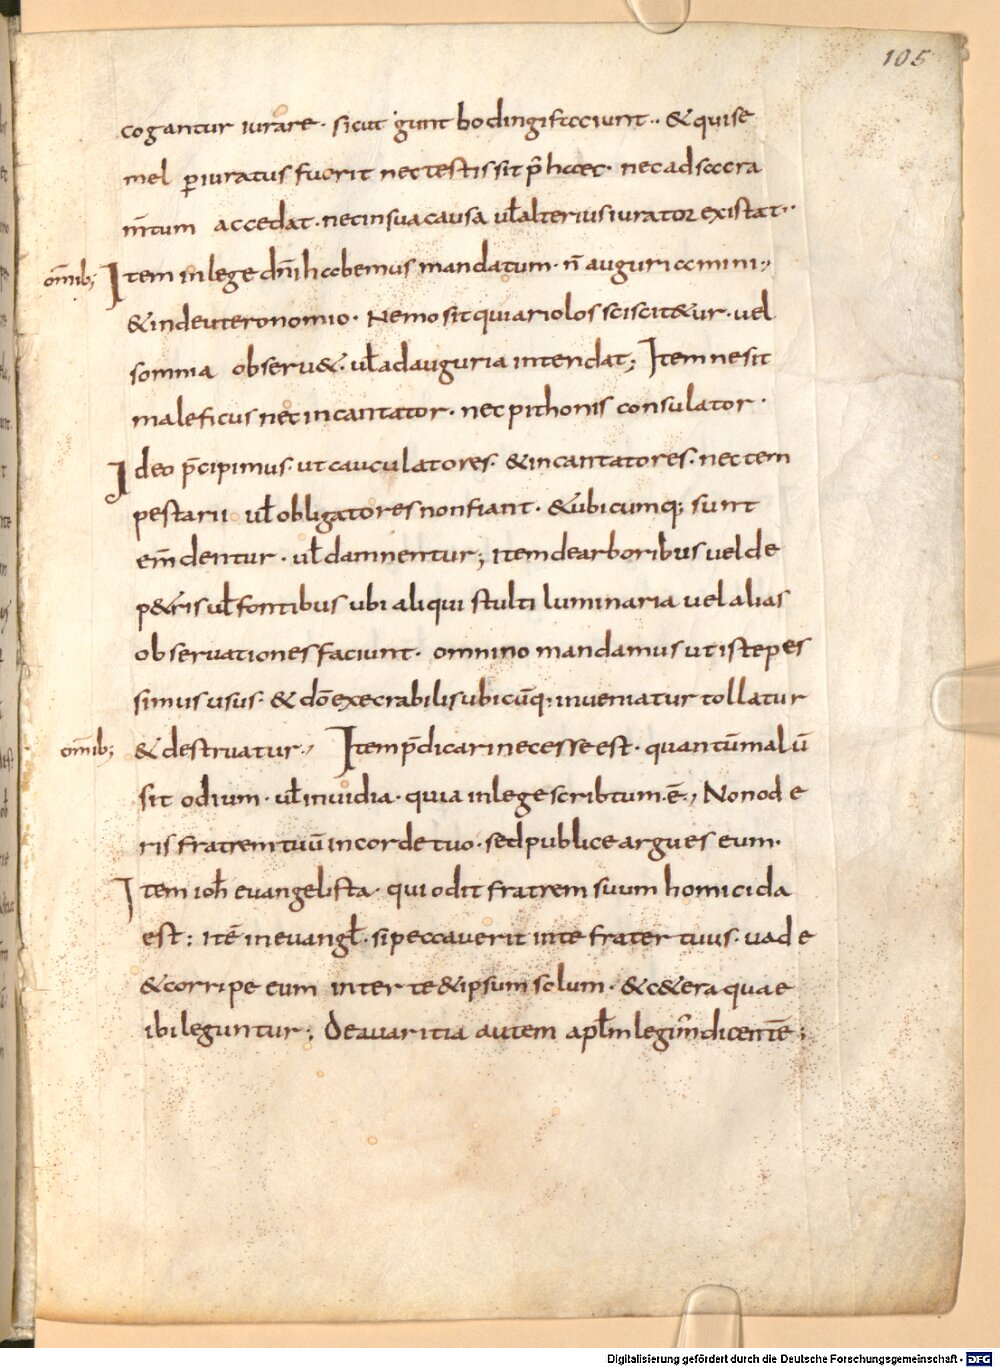 105
cogantur iurare· sicut guntbodingi faciunt·· & qui se
mel p̱iuratus fuerit nec testis sit p̄ haec· nec ad sacra
m̄tum accedat· nec in sua causa ul̄ alterius iurator existat··
om̄ib; Item in lege dn̄i habemus mandatum· n̄ auguriamini·,
& in deuteronomio· Nemo sit qui ariolos sciscit&ur· vel
somnia obseru&· ul̄ ad auguria intendat; Item ne sit
maleficus nec incantator· nec pithonis consulator·
Ideo p̄cipimus· ut cauculatores· & incantatores· nec tem
pestarii ul̄ obligatores non fiant· & ubicumq; sunt
em̄dentur· ul̄ damnentur; item de arboribus uel de
p&ris ul̄ fontibus ubi aliqui stulti luminaria uel alias
observationes faciunt· omnino mandamus ut iste pes
simus usus· & dō execrabilis ubicūq; inveniatur tollatur
om̄ib; & destruatur·, Item p̄dicari necesse est· quantūmalū
sit odium· ul̄ inuidia· quia in lege scribtum· ē·, Non ode
ris fratrem tuū in corde tuo· sed publice argues eum·
Item ioh̄ evangelista· qui odit fratrem suum homicida
est: itē in evangl̄· si peccaverit in te frater tuus· uade
& corripe eum inter te & ipsum solum· & c&era quae
ibi leguntur; De avaritia autem apl̄m legim̄ dicentē;
Digitalisierung gefördert durch die Deutsche Forschungsgemeinschaft - DFG